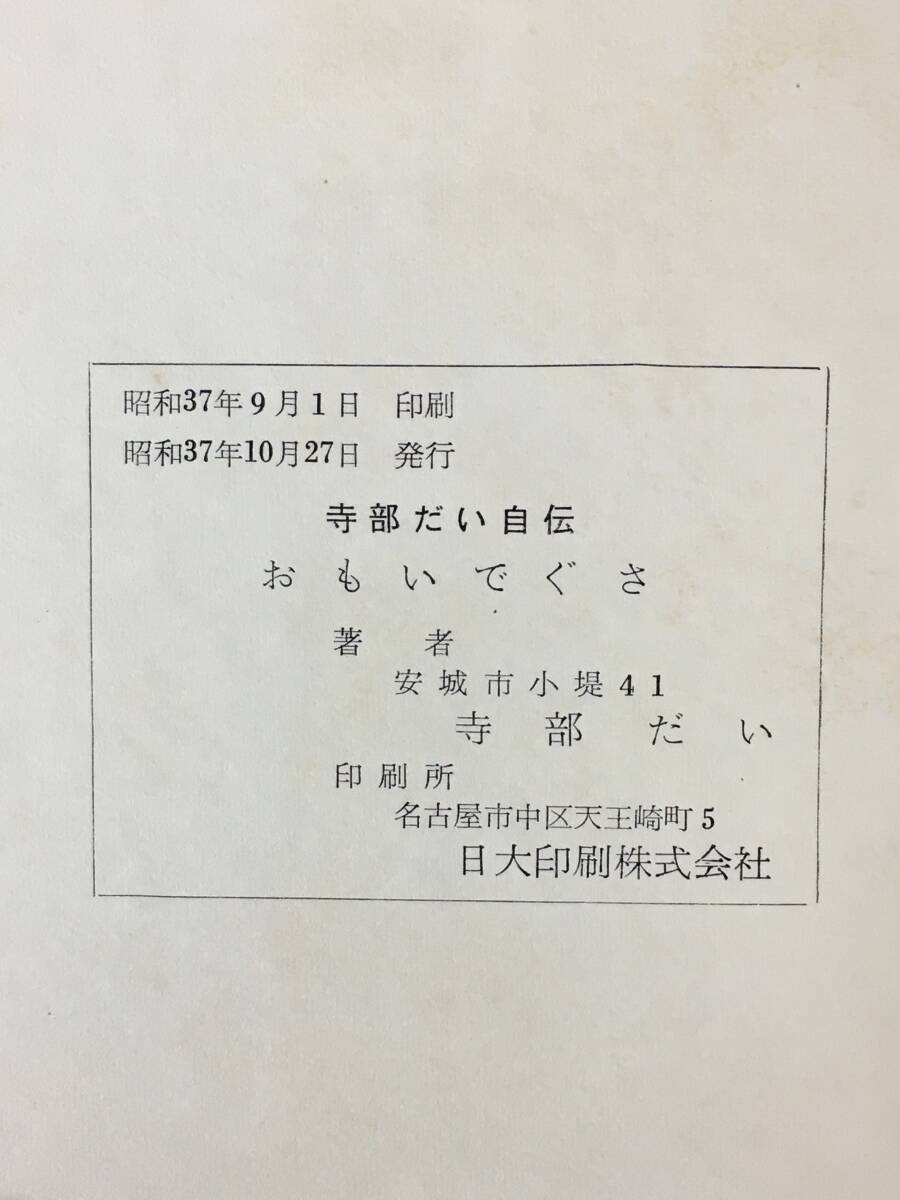 昭和37年9月1日 印刷
昭和37年10月27日 発行
寺部だい自伝
おもいでぐさ
著者
安城市小堤41
寺部だい
印刷所
名古屋市中区天王崎町5
日大印刷株式会社